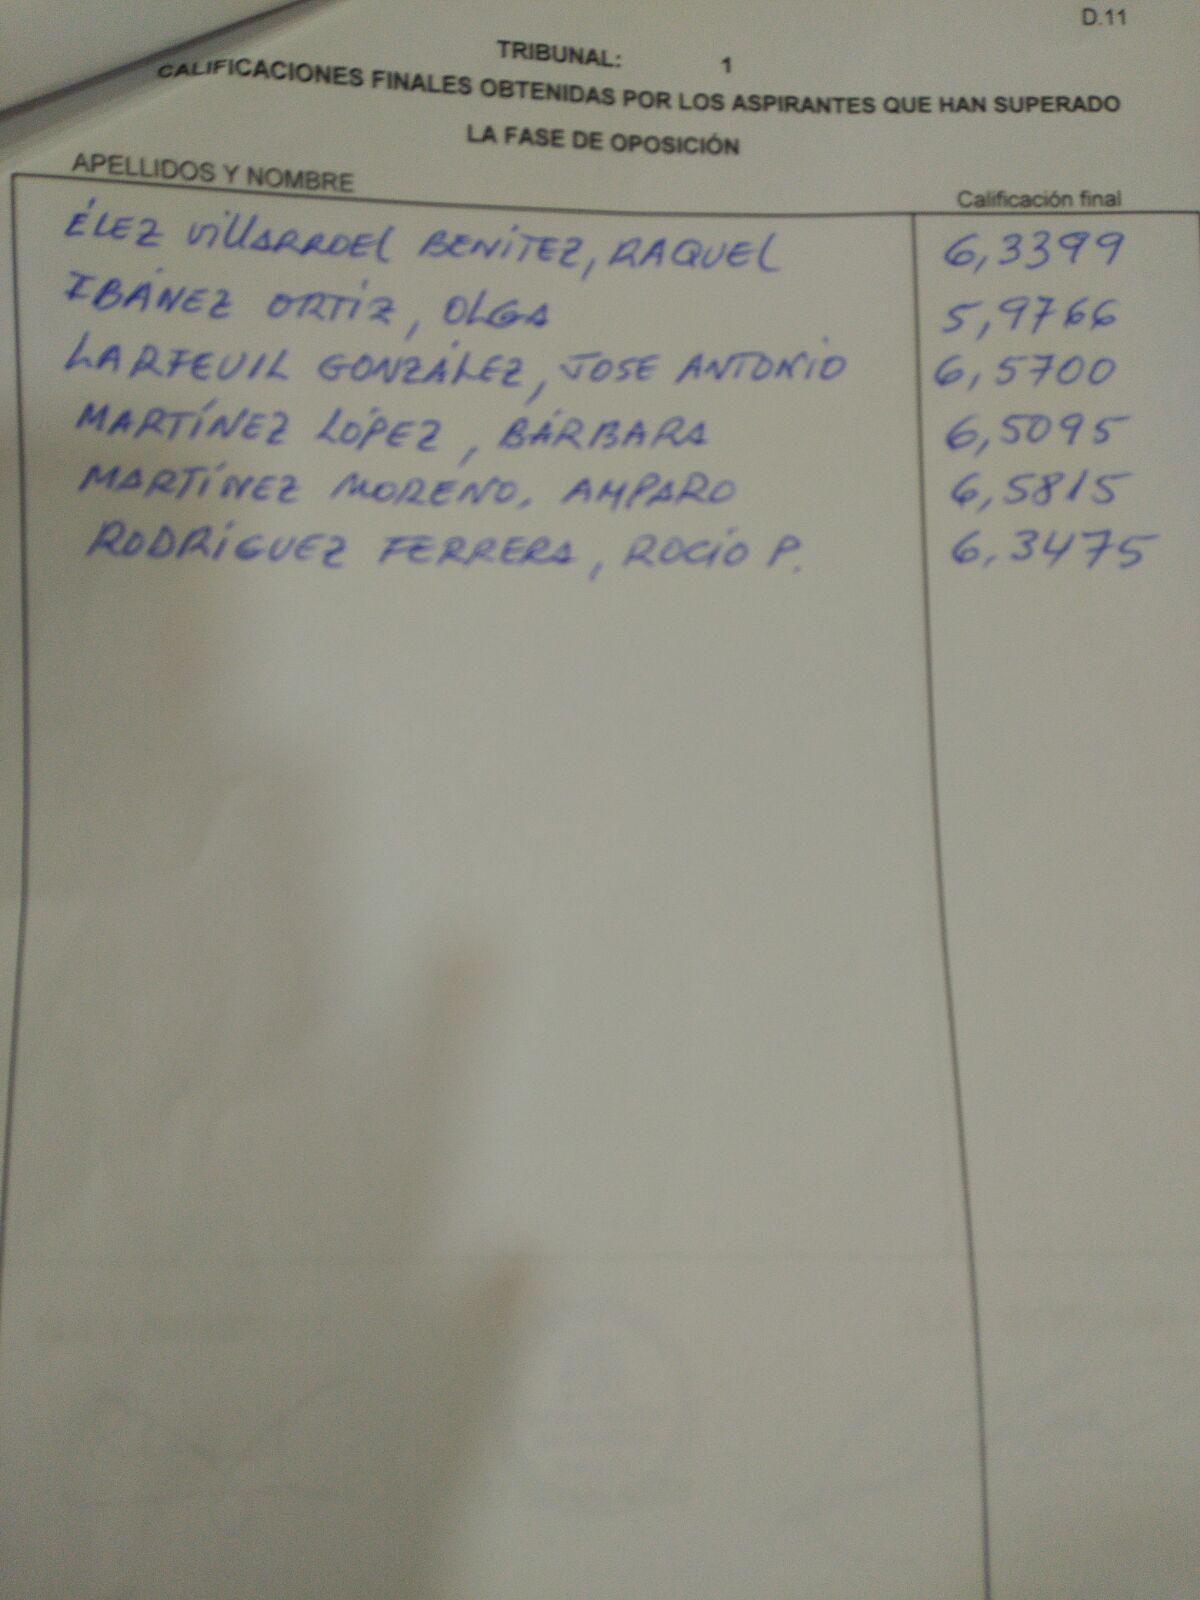 D.11
TRIBUNAL: 1
CALIFICACIONES FINALES OBTENIDAS POR LOS ASPIRANTES QUE HAN SUPERADO
LA FASE DE OPOSICIÓN
APELLIDOS Y NOMBRE Calificación final
ÉLEZ VILLARROEL BENÍTEZ, RAQUEL 6,3399
IBÁÑEZ ORTÍZ, OLGA 5,9766
LARFEUIL GONZÁLEZ, JOSE ANTONIO 6,5700
MARTÍNEZ LÓPEZ, BÁRBARA 6,5095
MARTÍNEZ MORENO, AMPARO 6,5815
RODRÍGUEZ FERRERA, ROCÍO P. 6,3475